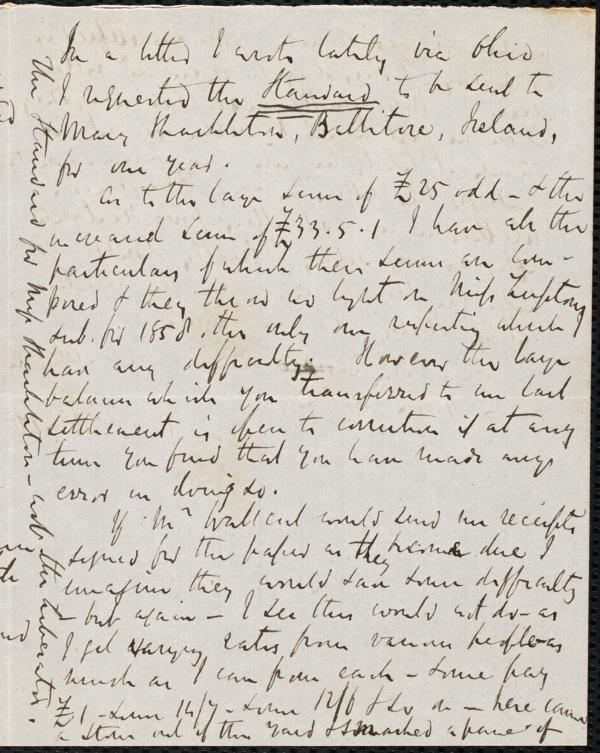 In a letter I wrote lately via Ohio
I requested the Standard to be sent to
Mary Shackleton, Ballitore, Ireland,
for one year.
As to the large sum of £25 odd – & the
increased sum of £33.5.1 I have all the
particulars of which these sums are com-
posed & they throw no light on Miss Lupton's
sub. for 1858, the only one respecting which I
have any difficulty. However the large
balance which you transferred to me last
settlement is open to correction if at any
time you find that you have made any
error in doing so.
If Mr Wallcut would send me receipts
signed for the papers as they become due I
imagine they would save some difficulty
– but again – I see this would not do – as
I get varying rates from various people – as
much as I can from each – some pay
£1 – some 14/7 – some 12/6 & so on – here came
a stone out of the yard & smashed a pane of
The Standard for Miss Shackleton – not the Liberator.